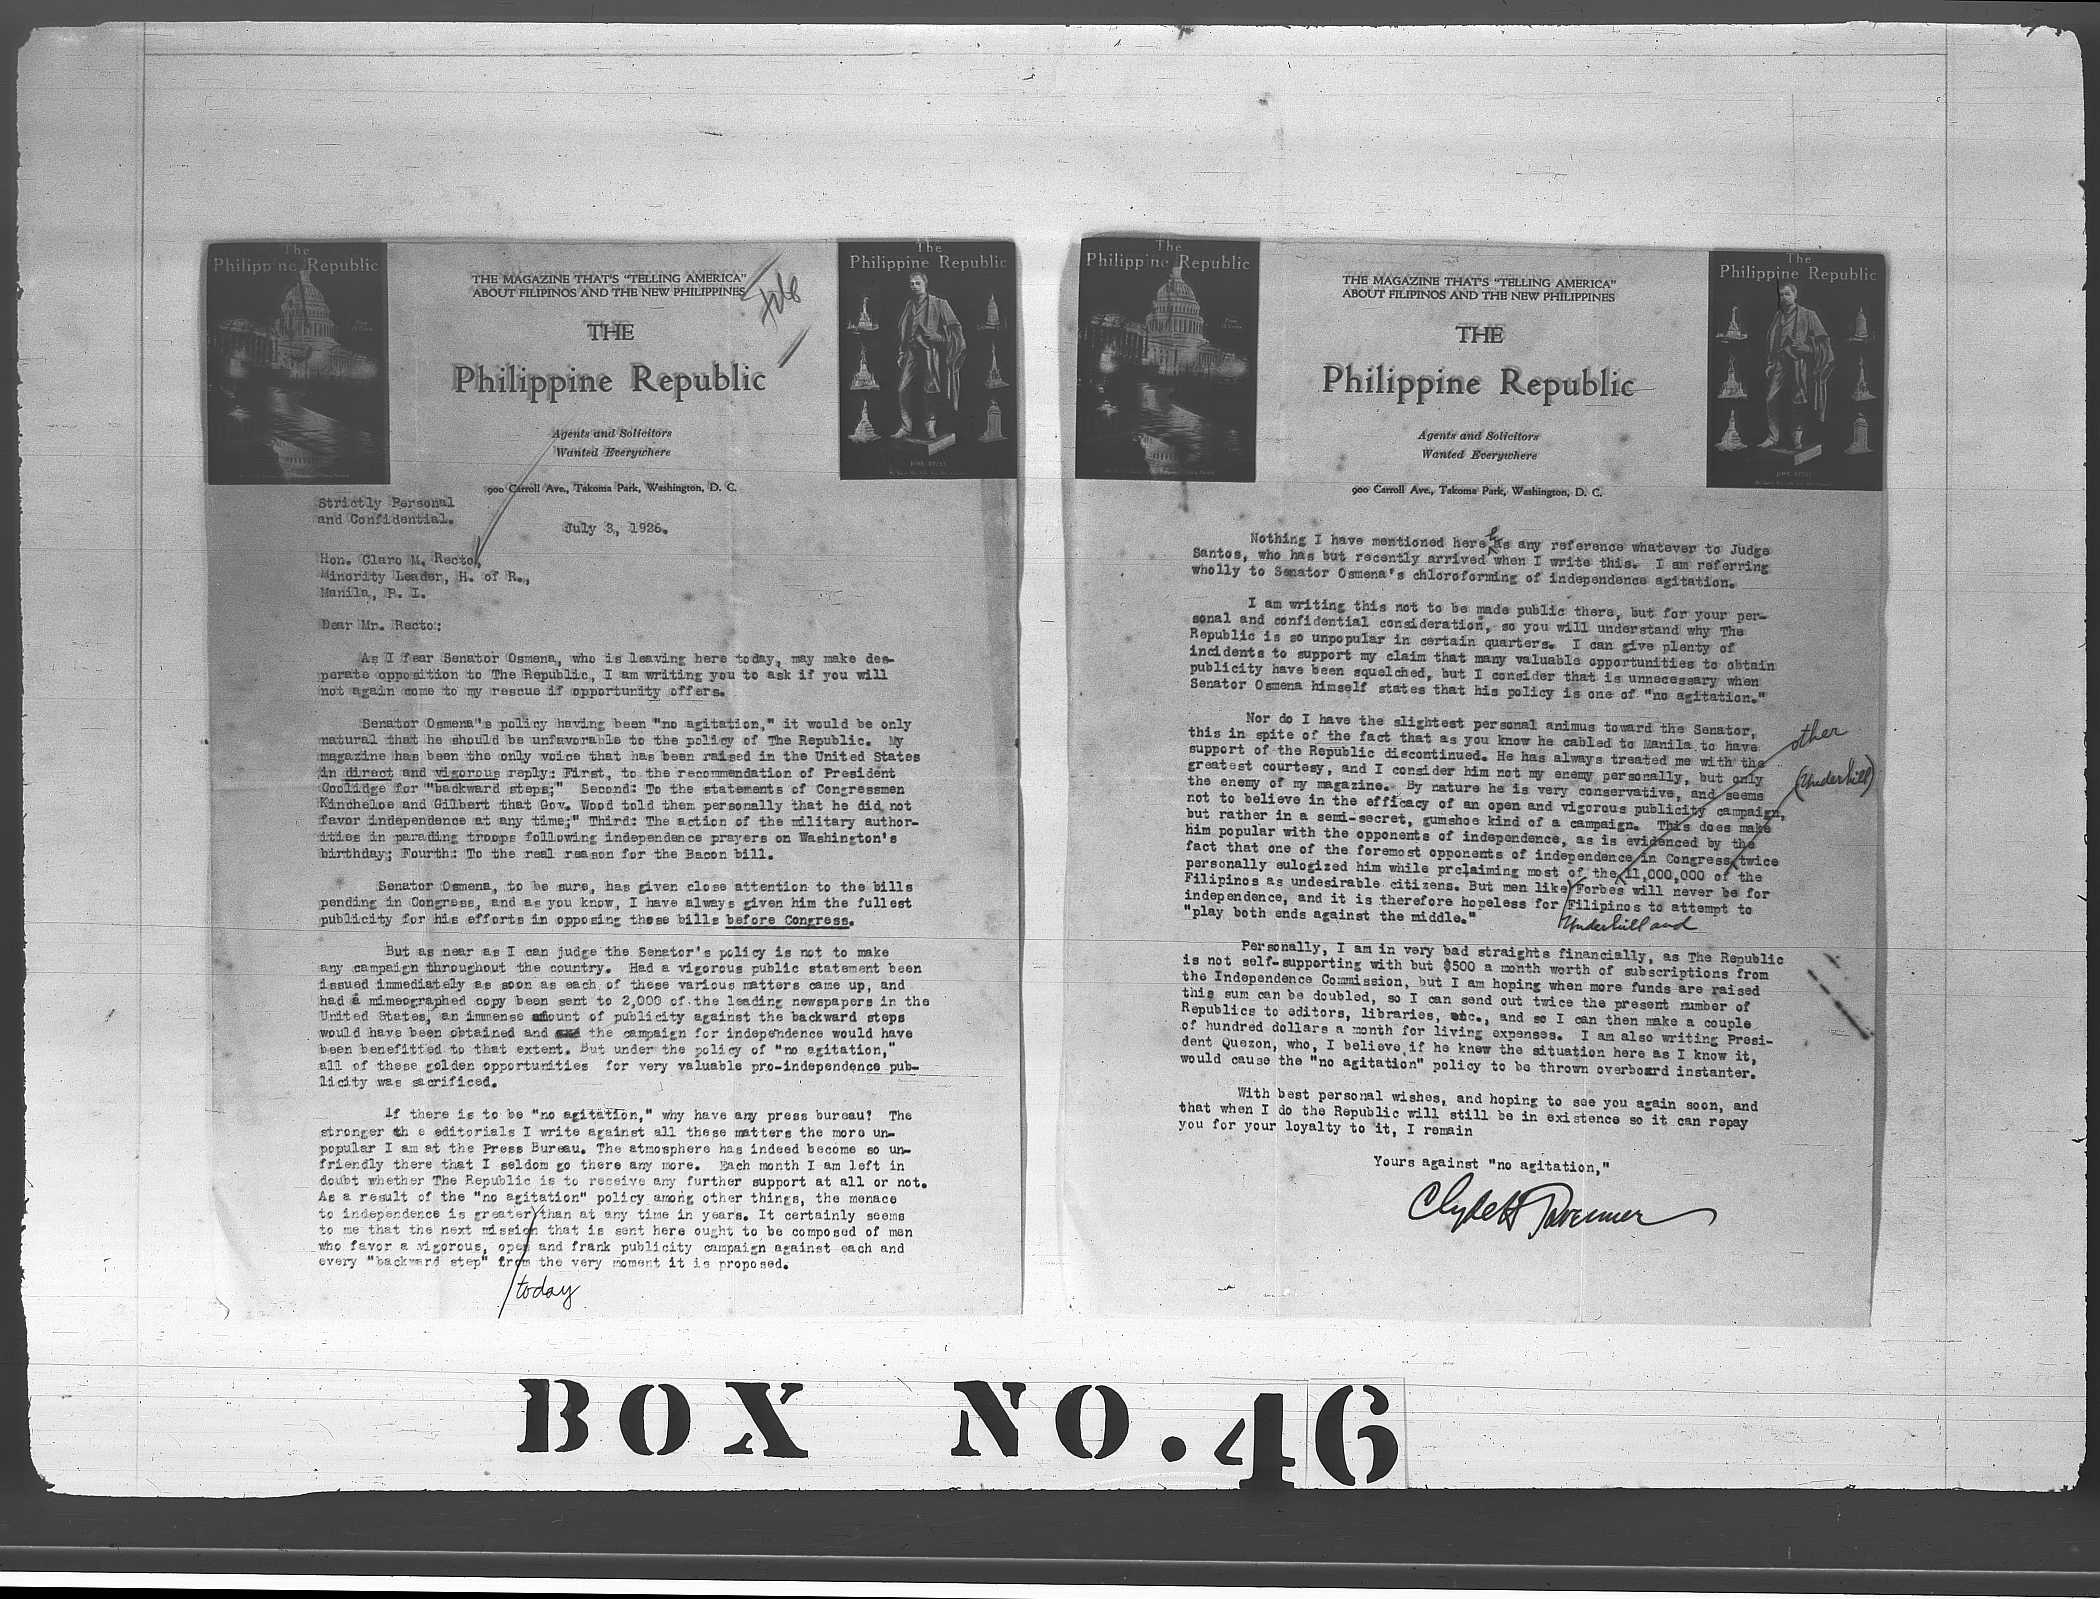 The
Philippine Republic
THE MAGAZINE THAT'S "TELLING AMERICA"
ABOUT FILIPINOS AND THE NEW PHILIPPINES
THE
Philippine Republic
Agents and Solicitors
Wanted Everywhere
900 Carroll Ave., Takoma Park, Washington, D. C.
The
Philippine Republic
Strictly Personal
and Confidential.
July 3, 1926.
Hon. Claro M. Recto,
Minority Leader, H. of R.,
Manila, P. I.
Dear Mr. Recto:
As I fear Senator Osmena, who is leaving here today, may make des-
perate opposition to The Republic, I am writing you to ask if you will
not again come to my rescue if opportunity offers.
Senator Osmena"s policy having been "no agitation," it would be only
natural that he should be unfavorable to the policy of The Republic. My
magazine has been the only voice that has been raised in the United States
in direct and vigorous reply: First, to the recommendation of President
Coolidge for "backward steps;" Second: To the statements of Congressmen
Kincheloe and Gilbert that Gov. Wood told them personally that he did not
favor independence at any time;" Third: The action of the military author-
ities in parading troops following independence prayers on Washington's
birthday; Fourth: To the real reason for the Bacon bill.
Senator Osmena, to be sure, has given close attention to the bills
pending in Congress, and as you know, I have always given him the fullest
publicity for his efforts in opposing those bills before Congress.
But as near as I can judge the Senator's policy is not to make
any campaign throughout the country. Had a vigorous public statement been
issued immediately as soon as each of these various matters came up, and
had a mimeographed copy been sent to 2,000 of the leading newspapers in the
United States, an immense amount of publicity against the backward steps
would have been obtained and the campaign for independence would have
been benefitted to that extent. But under the policy of "no agitation,"
all of these golden opportunities for very valuable pro-independence pub-
licity was sacrificed.
If there is to be "no agitation," why have any press bureau? The
stronger th e editorials I write against all these matters the more un-
popular I am at the Press Bureau. The atmosphere has indeed become so un-
friendly there that I seldom go there any more. Each month I am left in
doubt whether The Republic is to receive any further support at all or not.
As a result of the "no agitation" policy among other things, the menace
to independence is greater than at any time in years. It certainly seems
to me that the next mission that is sent here ought to be composed of men
who favor a vigorous, open and frank publicity campaign against each and
every "backward step" from the very moment it is proposed.
today
The
Philippine Republic
THE MAGAZINE THAT'S "TELLING AMERICA"
ABOUT FILIPINOS AND THE NEW PHILIPPINES
THE
Philippine Republic
Agents and Solicitors
Wanted Everywhere
900 Carroll Ave., Takoma Park, Washington, D. C.
The
Philippine Republic
Nothing I have mentioned here has any reference whatever to Judge
Santos, who has but recently arrived when I write this. I am referring
wholly to Senator Osmena's chloroforming of independence agitation.
I am writing this not to be made public there, but for your per-
sonal and confidential consideration, so you will understand why The
Republic is so unpopular in certain quarters. I can give plenty of
incidents to support my claim that many valuable opportunities to obtain
publicity have been squelched, but I consider that is unnecessary when
Senator Osmena himself states that his policy is one of "no agitation."
Nor do I have the slightest personal animus toward the Senator,
this in spite of the fact that as you know he cabled to Manila to have
support of the Republic discontinued. He has always treated me with the
greatest courtesy, and I consider him not my enemy personally, but only
the enemy of my magazine. By nature he is very conservative, and seems
not to believe in the efficacy of an open and vigorous publicity campaign,
but rather in a semi-secret, gumshoe kind of a campaign. This does make
him popular with the opponents of independence, as is evidenced by the
fact that one of the foremost opponents of independence in Congress twice
personally eulogized him while proclaiming most of the 11,000,000 of the
Filipinos as undesirable citizens. But men like Forbes will never be for
independence, and it is therefore hopeless for Filipinos to attempt to
"play both ends against the middle."
other
(Underhill)
Underhill and
Personally, I am in very bad straights financially, as The Republic
is not self-supporting with but $500 a month worth of subscriptions from
the Independence Commission, but I am hoping when more funds are raised
this sum can be doubled, so I can send out twice the present number of
Republics to editors, libraries, etc., and so I can then make a couple
of hundred dollars a month for living expenses. I am also writing Presi-
dent Quezon, who, I believe, if he knew the situation here as I know it,
would cause the "no agitation" policy to be thrown overboard instanter.
With best personal wishes, and hoping to see you again soon, and
that when I do the Republic will still be in existence so it can repay
you for your loyalty to it, I remain
Yours against "no agitation,"
Clyde H Tavenner
BOX NO. 46